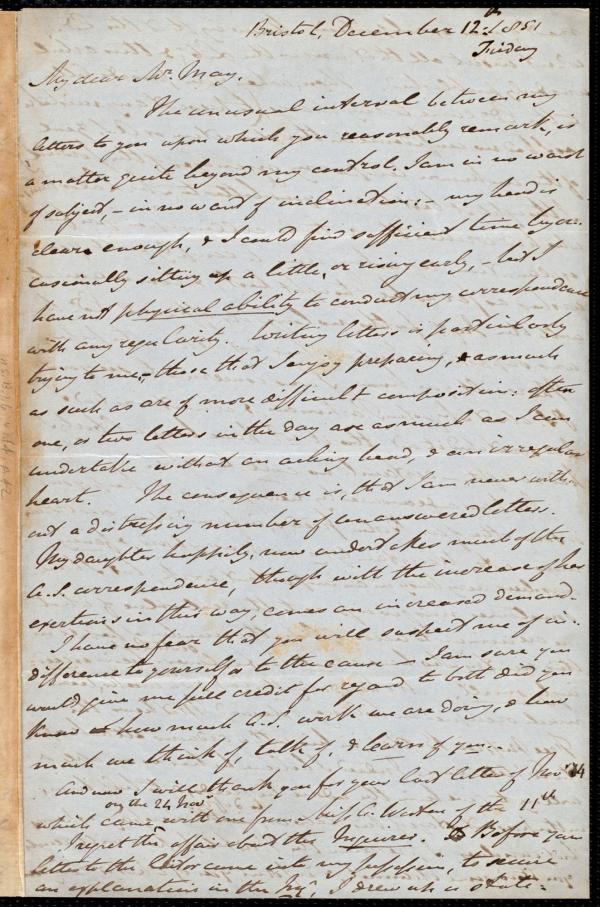 Bristol, December 12th 1851
Friday
My dear Mr. May,
The unusual interval between my
letters to you upon which you reasonably remark, is
a matter quite beyond my control. I am in no want
of subject, - in no want of inclination; - my head is
clear enough, & I could find sufficient time by oc-
casionally sitting up a little, or rising early, - but I
have not physical ability to conduct my correspondence
with any regularity. Writing letters is particularly
trying to me, - those that I enjoy preparing, as much
as such as are of more difficult composition: often
one, or two letters in the day are as much as I can
undertake without an aching head, & an irregular
heart. The consequence is, that I am never with-
out a distressing number of unanswered letters.
My daughter happily, now undertakes most of the
A.S. correspondence, though with the increase of her
exertions in this way, comes an increased demand.
I have no fear that you will suspect me of in-
difference to yourself or to the cause - I am sure you
would give me full credit for regard to both did you
know how much A.S. work we are doing, & how
much we think of, talk of, & learn of you.
And now I will thank you for your last letter of Nov
on the 24 Nov
which came with one from Miss A. Weston of the 11th
I regret the affair about the Inquirer. Before your
letter to the Editor came into my possession, to secure
an explanation in the Inqr, I drew up a state-